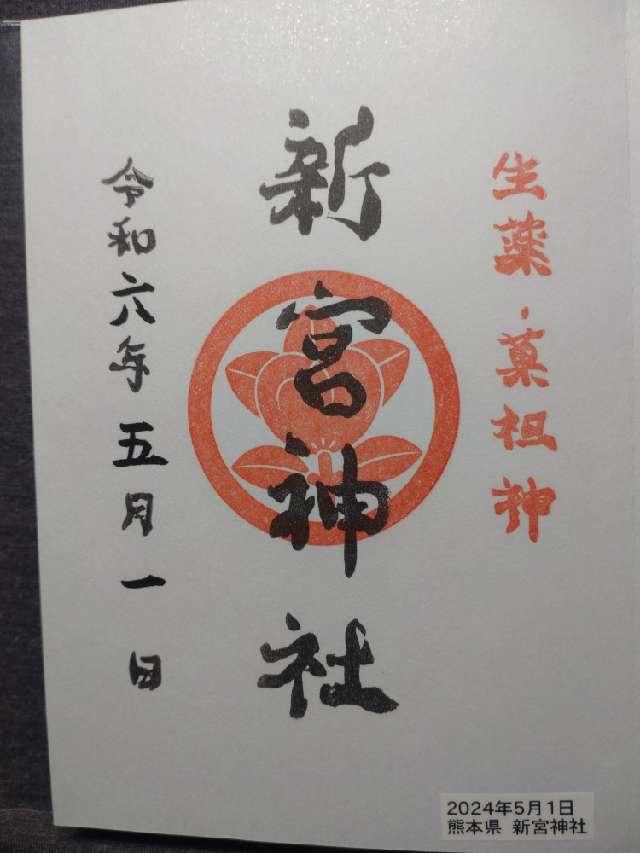 生薬・菓祖神
新宮神社
令和六年五月一日
2024年5月1日
熊本県 新宮神社